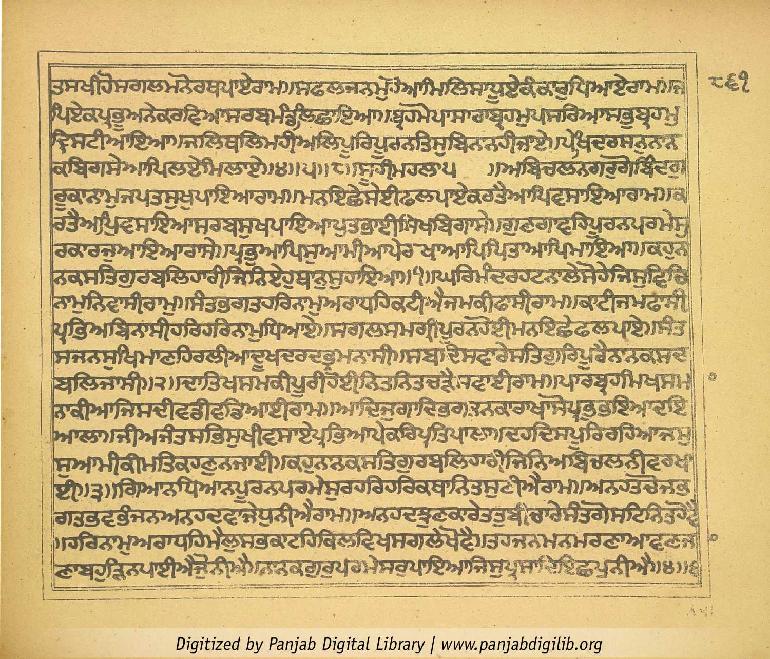 ਤਸਖੀਹੋਸਗਲਮਨੋਰਥਪਾਏਰਾਮ॥ਸਫਲਜਨਮੁਹੋਆਮਿਲਿਸਾਧੂਏਕੰਕਾਰੁਧਿਆਏਰਾਮ॥ਜ ੮੬੧
ਪਿਏਕਪ੍ਰਭੂਅਨੇਕਰਵਿਆਸਰਬਮੰਡਲਿਛਾਇਆ॥ਬ੍ਰਹਮੋਪਾਸਾਰਾਬ੍ਰਹਮੁਪਸਰਿਆਸਭੁਬ੍ਰਹਮੁ
ਦ੍ਰਿਸਟੀਆਇਆ॥ਜਲਿਥਲਿਮਹੀਅਲਿਪੂਰਿਪੂਰਨਤਿਸੁਬਿਨਾਨਹੀਜਾਏ॥ਪੇਖਿਦਰਸਨੁਨਾਨ
ਕਬਿਗਸੇਆਪਿਲਏਮਿਲਾਏ॥੪॥੫॥੮॥ਸੂਹੀਮਹਲਾ੫ ॥ਅਬਿਚਲਨਗਰੁਗੋਬਿੰਦਗੁ
ਰੂਕਾਨਾਮੁਜਪਤਸੁਖੁਪਾਇਆਰਾਮ॥ਮਨਇਛੇਸੇਈਫਲਪਾਏਕਰਤੈਆਪਿਵਸਾਇਆਰਾਮ॥ਕ
ਰਤੈਆਪਿਵਸਾਇਆਸਰਬਸੁਖਪਾਇਆਪੁਤਭਾਈਸਿਖਬਿਗਾਸੇ॥ਗੁਣਗਾਵਹਿਪੂਰਨਪਰਮੇਸੁ
ਰਕਾਰਜੁਆਇਆਰਾਸੇ॥ਪ੍ਰਭੁਆਪਿਸੁਆਮੀਆਪੇਰਖਾਆਪਿਪਿਤਾਆਪਿਮਾਇਆ॥ਕਹੁਨਾ
ਨਕਸਤਿਗੁਰਬਲਿਹਾਰੀਜਿਨਿਏਹੁਥਾਨੁਸੁਹਾਇਆ॥੧॥ਘਰਮੰਦਰਹਟਨਾਲੇਸੋਹੇਜਿਸੁਵਿਚਿ
ਨਾਮੁਨਿਵਾਸੀਰਾਮ॥ਸੰਤਭਗਤਹਰਿਨਾਮੁਅਰਾਧਹਿਕਟੀਐਜਮਕੀਫਾਸੀਰਾਮ॥ਕਾਟੀਜਮਫਾਸੀ
ਪ੍ਰਭਿਅਬਿਨਾਸੀਹਰਿਹਰਿਨਾਮੁਧਿਆਏ॥ਸਗਲਸਮਗ੍ਰੀਪੂਰਨਹੋਈਮਨਇਛੇਫਲਪਾਏ॥ਸੰਤ
ਸਜਨਸੁਖਿਮਾਣਹਿਰਲੀਆਦੂਖਦਰਦਭ੍ਰਮਨਾਸੀ॥ਸਬਦਿਸਵਾਰੇਸਤਿਗੁਰਿਪੂਰੈਨਾਨਕਸਦ
ਬਲਿਜਾਸੀ॥੨॥ਦਾਤਿਖਸਮਕੀਪੂਰੀਹੋਈਨਿਤਨਿਤਚੜੈਸਵਾਈਰਾਮ॥ਪਾਰਬ੍ਰਹਮਿਖਸਮ
ਨਾਕੀਆਜਿਸਦੀਵਡੀਵਡਿਆਈਰਾਮ॥ਆਦਿਜੁਗਾਦਿਭਗਤਨਕਾਰਾਖਾਸੋਪ੍ਰਭੁਭਇਆਦਇ
ਆਲਾ॥ਜੀਅਜੰਤਸਭਿਸੁਖੀਵਸਾਏਪ੍ਰਭਿਆਪੇਕਰਿਪ੍ਰਤਿਪਾਲਾ॥ਦਹਦਿਸਪੂਰਿਰਹਿਆਜਸੁ
ਸੁਆਮੀਕੀਮਤਿਕਹਣੁਨਜਾਈ॥ਕਹੁਨਾਨਕਸਤਿਗੁਰਬਲਿਹਾਰੀਜਿਨਿਅਬਿਚਲਨੀਵਰਖਾ
ਈ॥੩॥ਗਿਆਨਧਿਆਨਪੂਰਨਪਰਮੇਸੁਰਹਰਿਹਰਿਕਥਾਨਿਤਸੁਣੀਐਰਾਮ॥ਅਨਹਤਚੋਜਭ
ਗਤਭਵਭੰਜਨਅਨਹਦਵਾਜੇਧੁਨੀਐਰਾਮ॥ਅਨਹਦਝੁਣਕਾਰੇਤਤੁਬੀਚਾਰੇਸੰਤਗੋਸਟਿਨਿਤਹੋਵੈ
॥ਹਰਿਨਾਮੁਅਰਾਧਹਿਮੈਲੁਸਭਕਾਟਹਿਕਿਲਵਿਖਸਗਲੇਖੋਵੈ॥ਤਹਜਨਮਨਮਰਣਾਆਵਣਜ
ਣਾਬਹੁੜਿਨਪਾਈਐਜੋੁਨੀਐ॥ਨਾਨਕਗੁਰੁਪਰਮੇਸਰੁਪਾਇਆਜਿਸੁਪ੍ਰਸਾਦਿਇਛਪੁਨੀਐ॥੪॥੬
Digitized by Panjab Digital Library | www.panjabdigilib.org